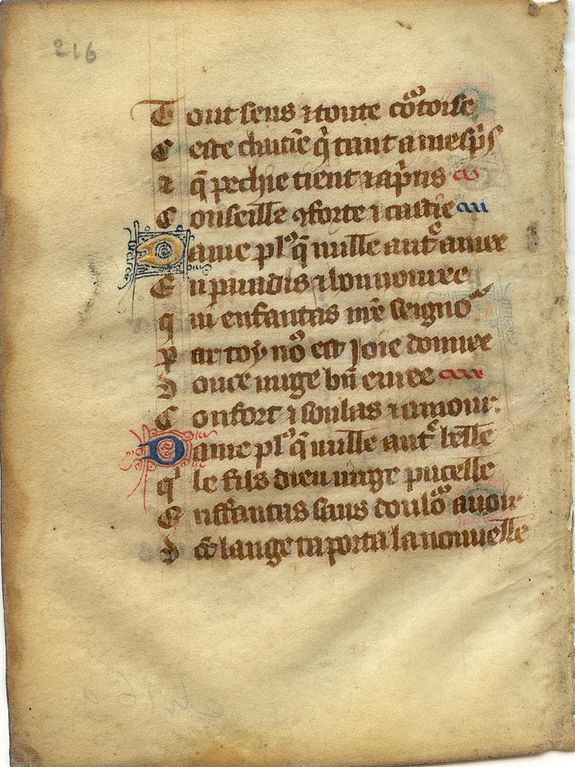 216
Tout sens ⁊ toute co᷑toise
Ceste chaitie q̃ tant a mesp̃s
q̃ pechie tient ⁊ ap̃ns
Conseille ꝯforte ⁊ castie
Dame plꝰ q̃ nulle aut᷑ amee
En paradis ⁊ honnouree
qui enfantas nr̃e seigno᷑
par toy no᷑ est Joie donnee
Douce uirge bn̄ euree
Confort ⁊ soulas ⁊ amour.
Dame plꝰ q̃ nulle aut᷑ belle
qⁱ le fils dieu uirge pucelle
Enffantas sans doulo᷑ auoir
lange ta porta la nouuelle